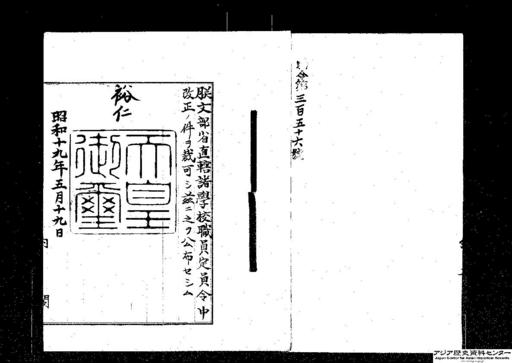 令第三百五十六號
朕文部省直轄諸學校職員定員令中
改正ノ件ヲ裁可シ茲ニ之ヲ公布セシム
裕仁
天皇御璽
昭和十九年五月十九日
内閣
アジア歴史資料センター
Japan Center for Asian Historical Records